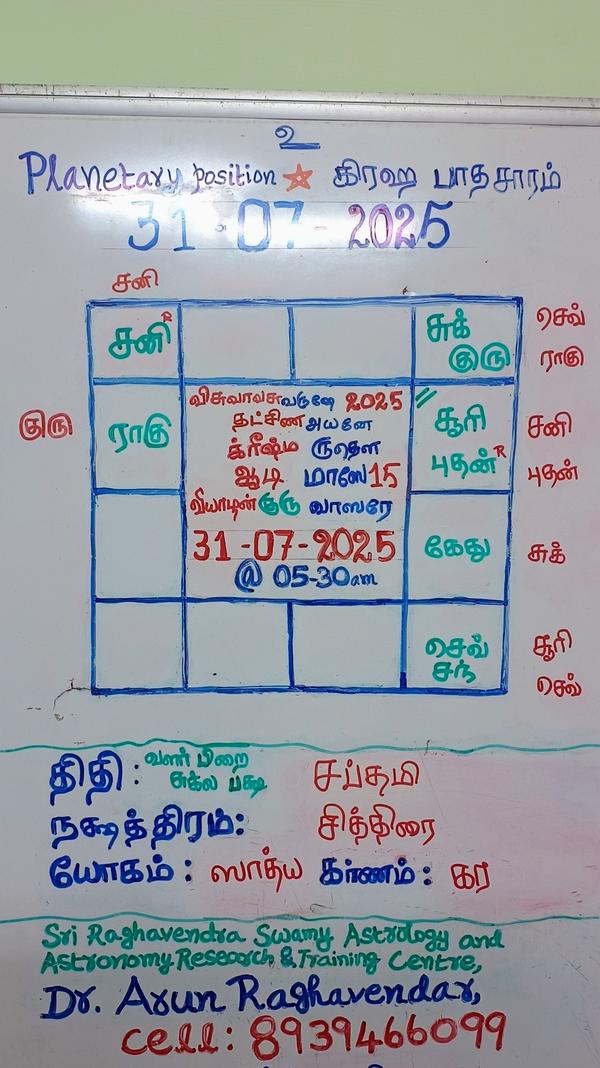 உ
Planetary position கிரஹ பாதசாரம்
31-07-2025
சனி
சனி R
சுக்
குரு
செவ்
ராகு
குரு
ராகு
விசுவாவசுவருஷே 2025
தட்சிண அயனே
க்ரீஷ்ம ருதௌ
ஆடி மாஸே 15
வியாழன் குரு வாஸரே
31-07-2025
@ 05-30am
சூரி
புதன் R
சனி
புதன்
கேது
சுக்
செவ்
சந்
சூரி
செவ்
திதி: வளர் பிறை சப்தமி
சுக்ல பக்ஷ
நக்ஷத்திரம்: சித்திரை
யோகம்: ஸாத்ய கர்ணம்: கர
Sri Raghavendra Swamy Astrology and
Astronomy Research & Training Centre,
Dr. Arun Raghavendar,
cell: 8939466099